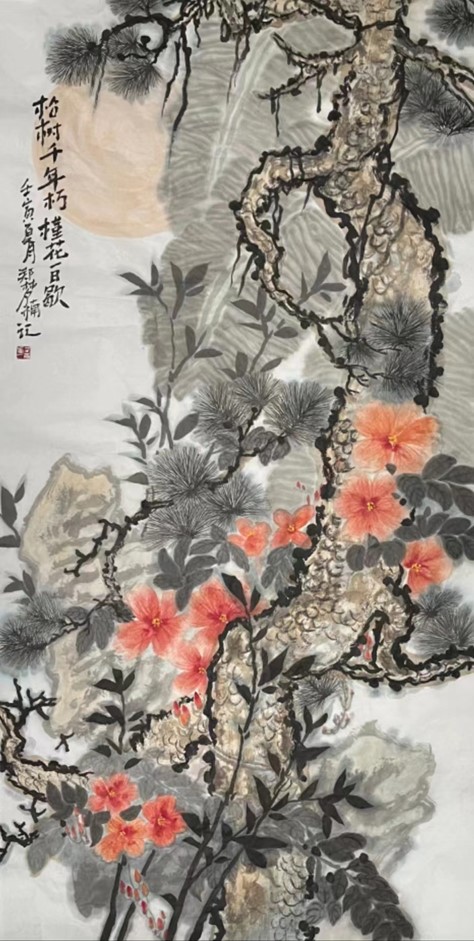 松树千年朽 槿花一日歇
壬寅夏月郑梦 记